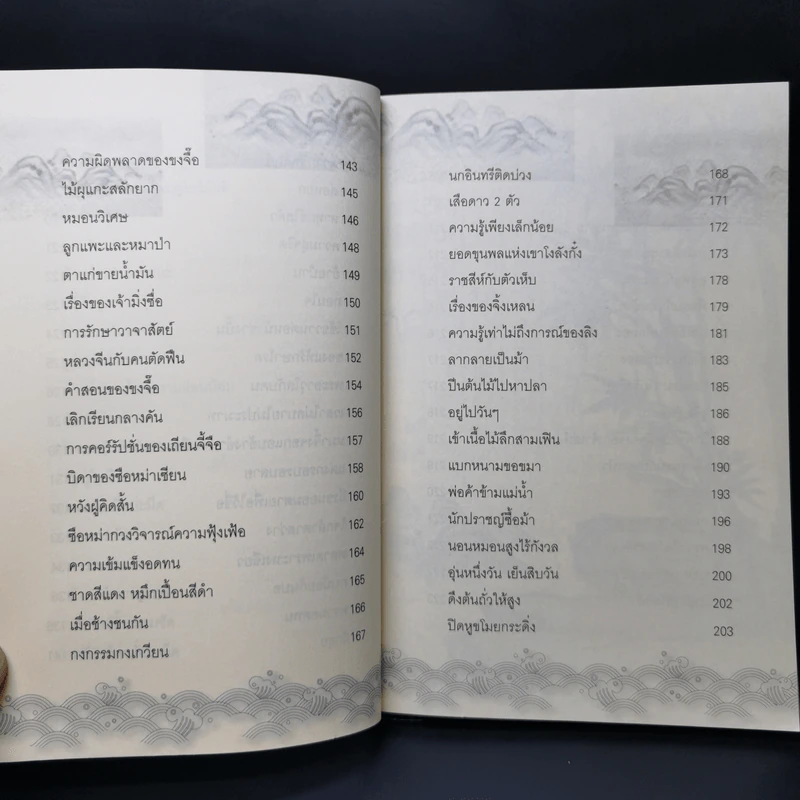 ความผิดพลาดของขงจื๊อ 143
ไม้ผุแกะสลักยาก 145
หมอนวิเศษ 146
ลูกแพะและหมาป่า 148
ตาแก่ขายน้ำมัน 149
เรื่องของเจ้ามิ่งซื่อ 150
การรักษาวาจาสัตย์ 151
หลวงจีนกับคนตัดฟืน 152
คำสอนของขงจื๊อ 154
เลิกเรียนกลางคัน 156
การคอร์รัปชั่นของเถียนจี้จือ 157
บิดาของซือหม่าเซียน 158
หวังผู่คิดสั้น 160
ซือหม่ากวงวิจารณ์ความฟุ้งเฟ้อ 162
ความเข้มแข็งอดทน 164
ชาดสีแดง หมึกเปื้อนสีดำ 165
เมื่อช้างชนกัน 166
กงกรรมกงเกวียน 167
นกอินทรีติดบ่วง 168
เสือดาว 2 ตัว 171
ความรู้เพียงเล็กน้อย 172
ยอดขุนพลแห่งเขาโงลังกั๋ง 173
ราชสีห์กับตัวเห็บ 178
เรื่องของจิ้งเหลน 179
ความรู้เท่าไม่ถึงการณ์ของลิง 181
ลากลายเป็นม้า 183
ปีนต้นไม้ไปหาปลา 185
อยู่ไปวันๆ 186
เข้าเนื้อไม้ลึกสามเฟิน 188
แบกหนามขอขมา 190
พ่อค้าข้ามแม่น้ำ 193
นักปราชญ์ซื้อม้า 196
นอนหมอนสูงไร้กังวล 198
อุ่นหนึ่งวัน เย็นสิบวัน 200
ดึงต้นถั่วให้สูง 202
ปิดหูขโมยกระดิ่ง 203